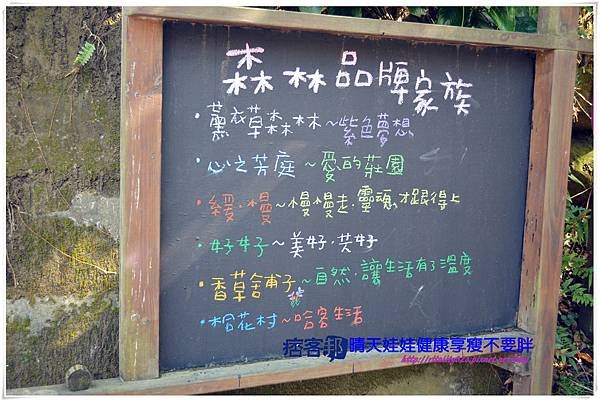 森林品牌家族
·薰衣草森林~紫色夢想
·心之芳庭~愛的莊園
·緩·慢~慢慢走·靈魂才跟得上
·好好~美好·共好
·香草舖子~自然·讓生活有了溫度
·桐花村~哈客生活
痞客邦 晴天娃娃健康享瘦不要胖